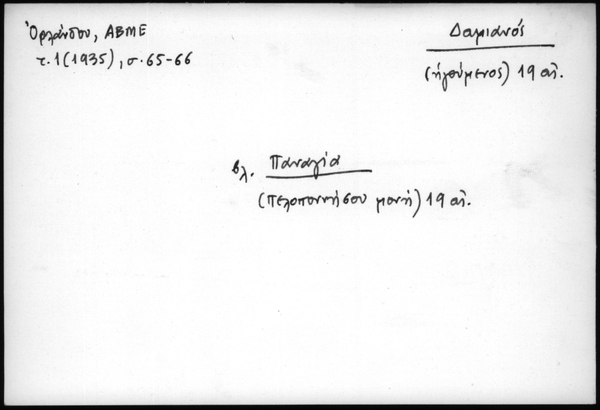 Ὀρλάνδου, ΑΒΜΕ
τ.1(1935), σ.65-66
Δαμιανός
(ἡγούμενος) 19 αἰ.
βλ. Παναγία
(Πελοποννήσου μονή) 19 αἰ.